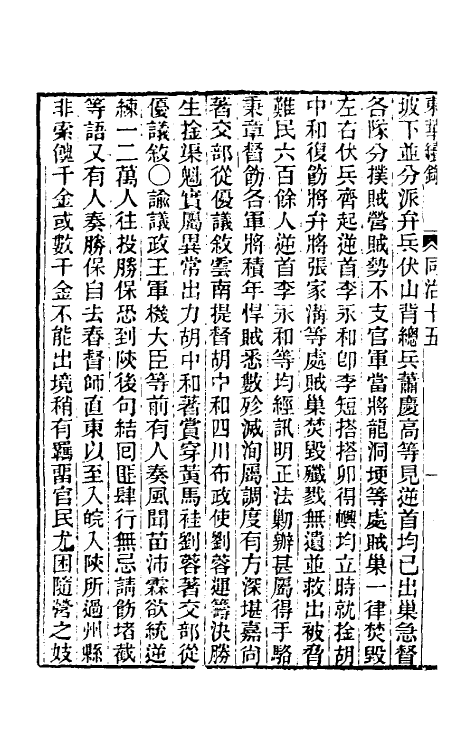 東華續錄 同治十五 一
坡下並分派弁兵伏山背總兵蕭慶高等見逆首均已出巢急督
各隊分撲賊營賊勢不支官軍當將龍洞埂等處賊巢一律焚毀
左右伏兵齊起逆首李永和卽李短搭搭卯得幗均立時就捦胡
中和復飭將弁將張家溝等處賊巢焚毀殲戮無遺並救出被脅
難民六百餘人逆首李永和等均經訊明正法勦辦甚屬得手駱
秉章督飭各軍將積年悍賊悉數殄滅洵屬調度有方深堪嘉尚
著交部從優議敘雲南提督胡中和四川布政使劉蓉運籌決勝
生捦渠魁實屬異常出力胡中和著賞穿黃馬褂劉蓉著交部從
優議敘○諭議政王軍機大臣等前有人奏風聞苗沛霖欲統逆
練一二萬人往投勝保恐到陝後句結回匪肆行無忌請飭堵截
等語又有人奏勝保自去春督師直東以至入皖入陝所過州縣
非索餽千金或數千金不能出境稍有羈畱官民尤困隨營之妓